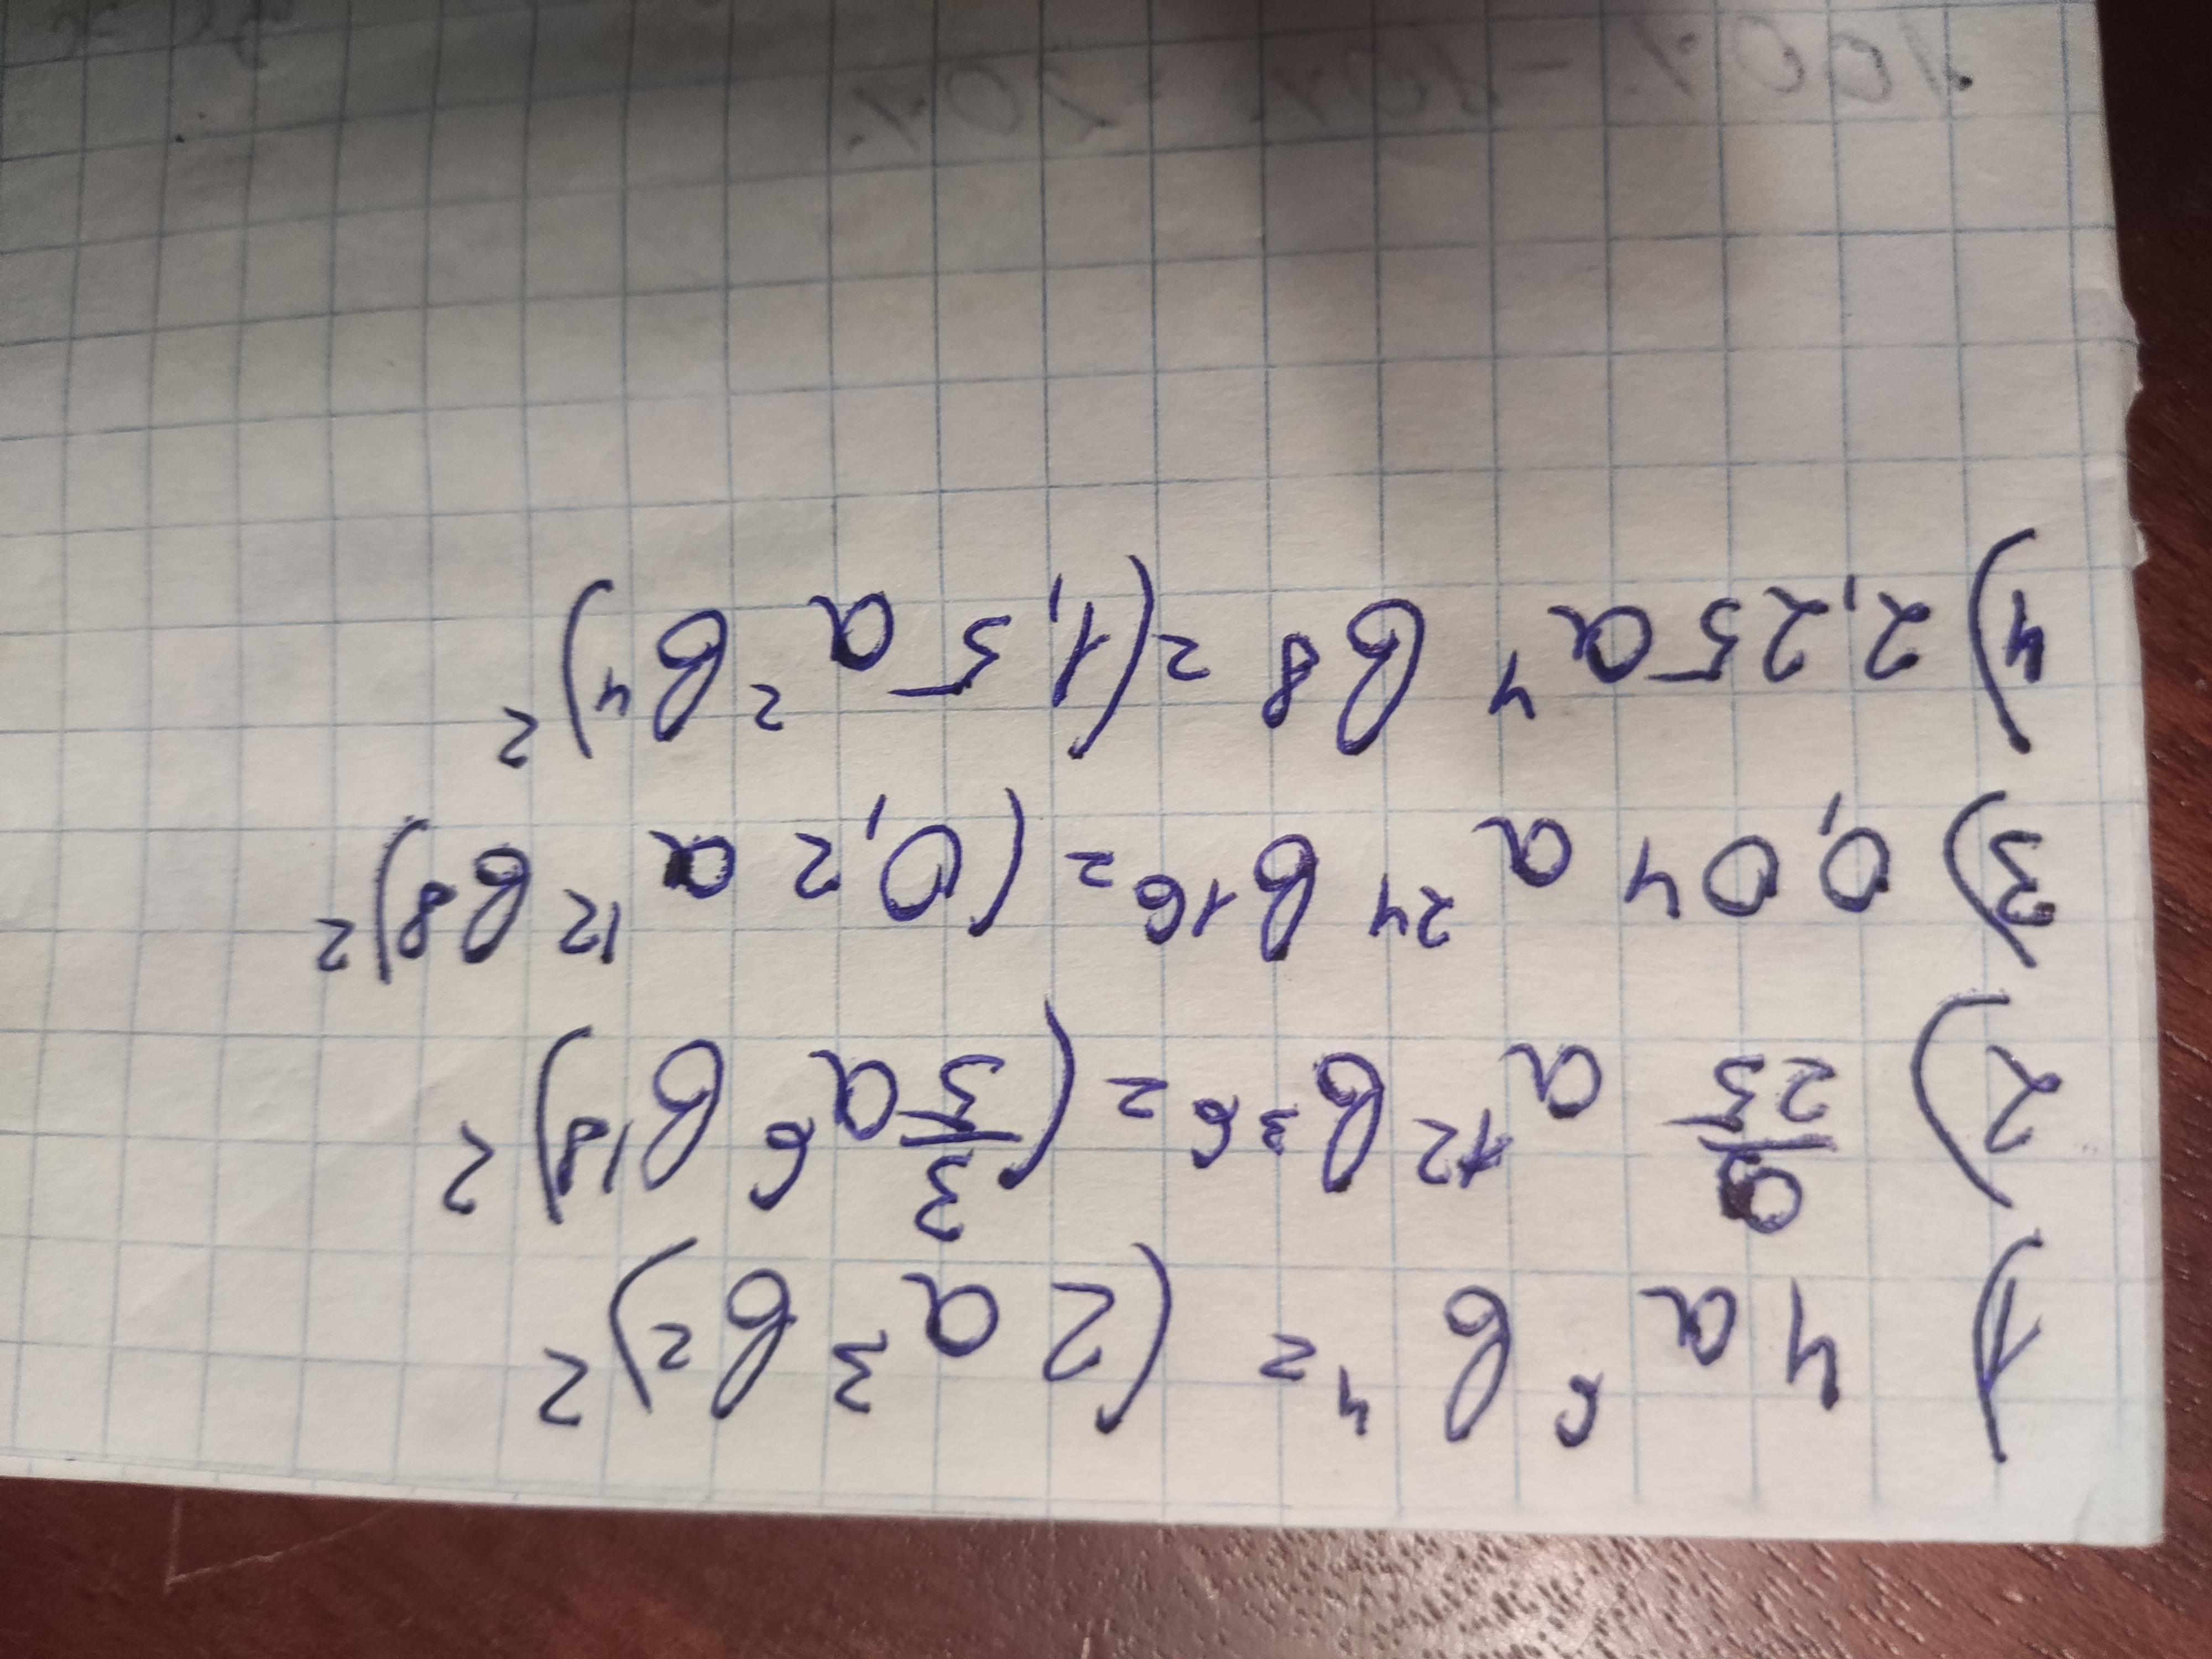 1) 4a⁶b⁴ = (2a³b²)²
2) 9/25 a¹²b³⁶ = (3/5 a⁶b¹⁸)²
3) 0,04a²⁴b¹⁶ = (0,2a¹²b⁸)²
4) 2,25a⁴b⁸ = (1,5a²b⁴)²